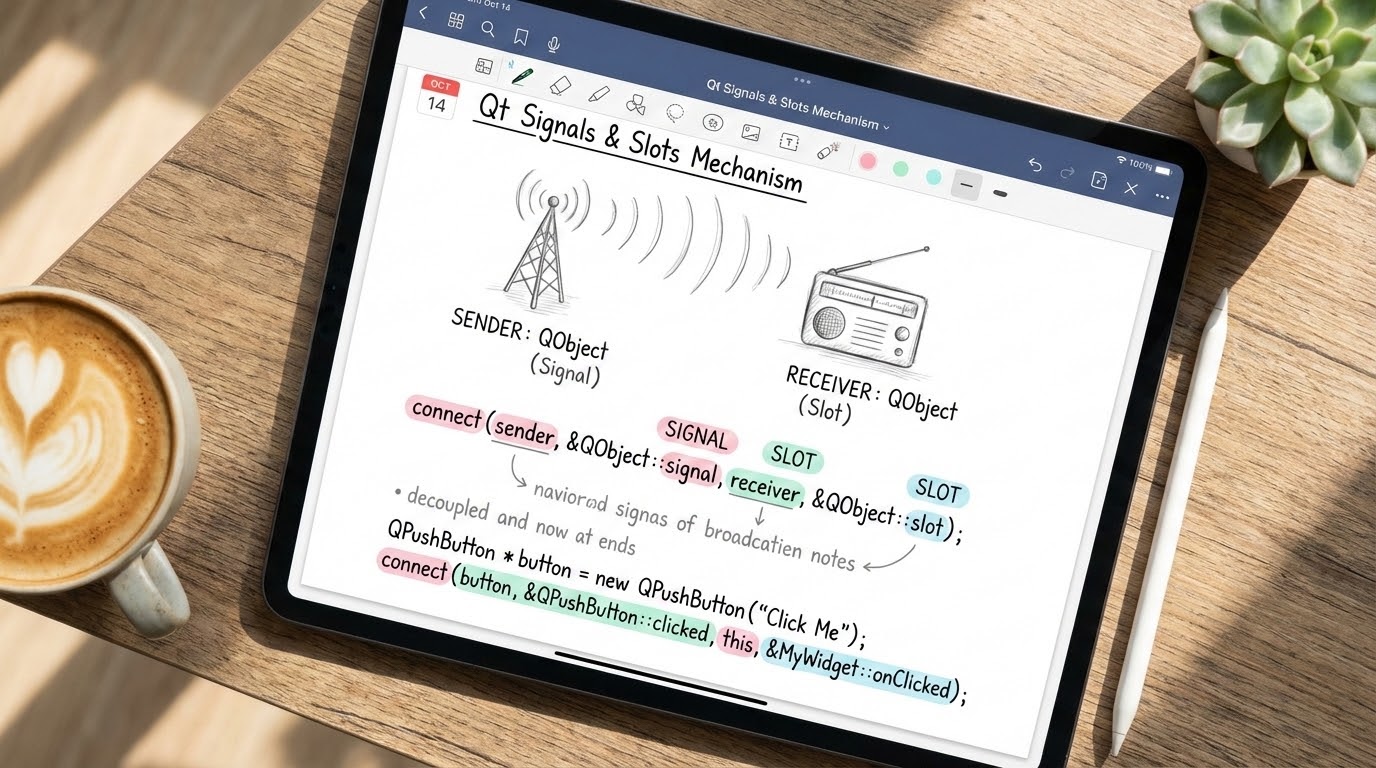 Oct 14
Qt Signals & Slots Mechanism
100%
OCT
14
Qt Signals & Slots Mechanism
SENDER: QObject
(Signal)
RECEIVER: QObject
(Slot)
SIGNAL
SLOT
SLOT
connect(sender, &QObject::signal, receiver, &QObject::slot);
signas of broadcation notes
• decoupled and now at ends
QPushButton *button = new QPushButton("Click Me");
connect(button, &QPushButton::clicked, this, &MyWidget::onClicked);